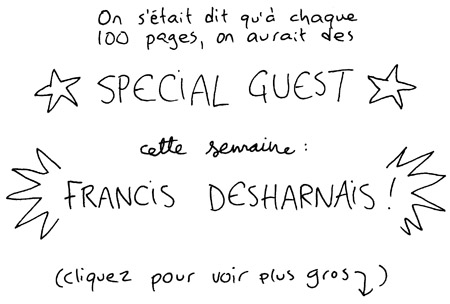 On s'était dit qu'à chaque
100 pages, on aurait des
SPECIAL GUEST
cette semaine :
FRANCIS DESHARNAIS !
(cliquez pour voir plus gros)